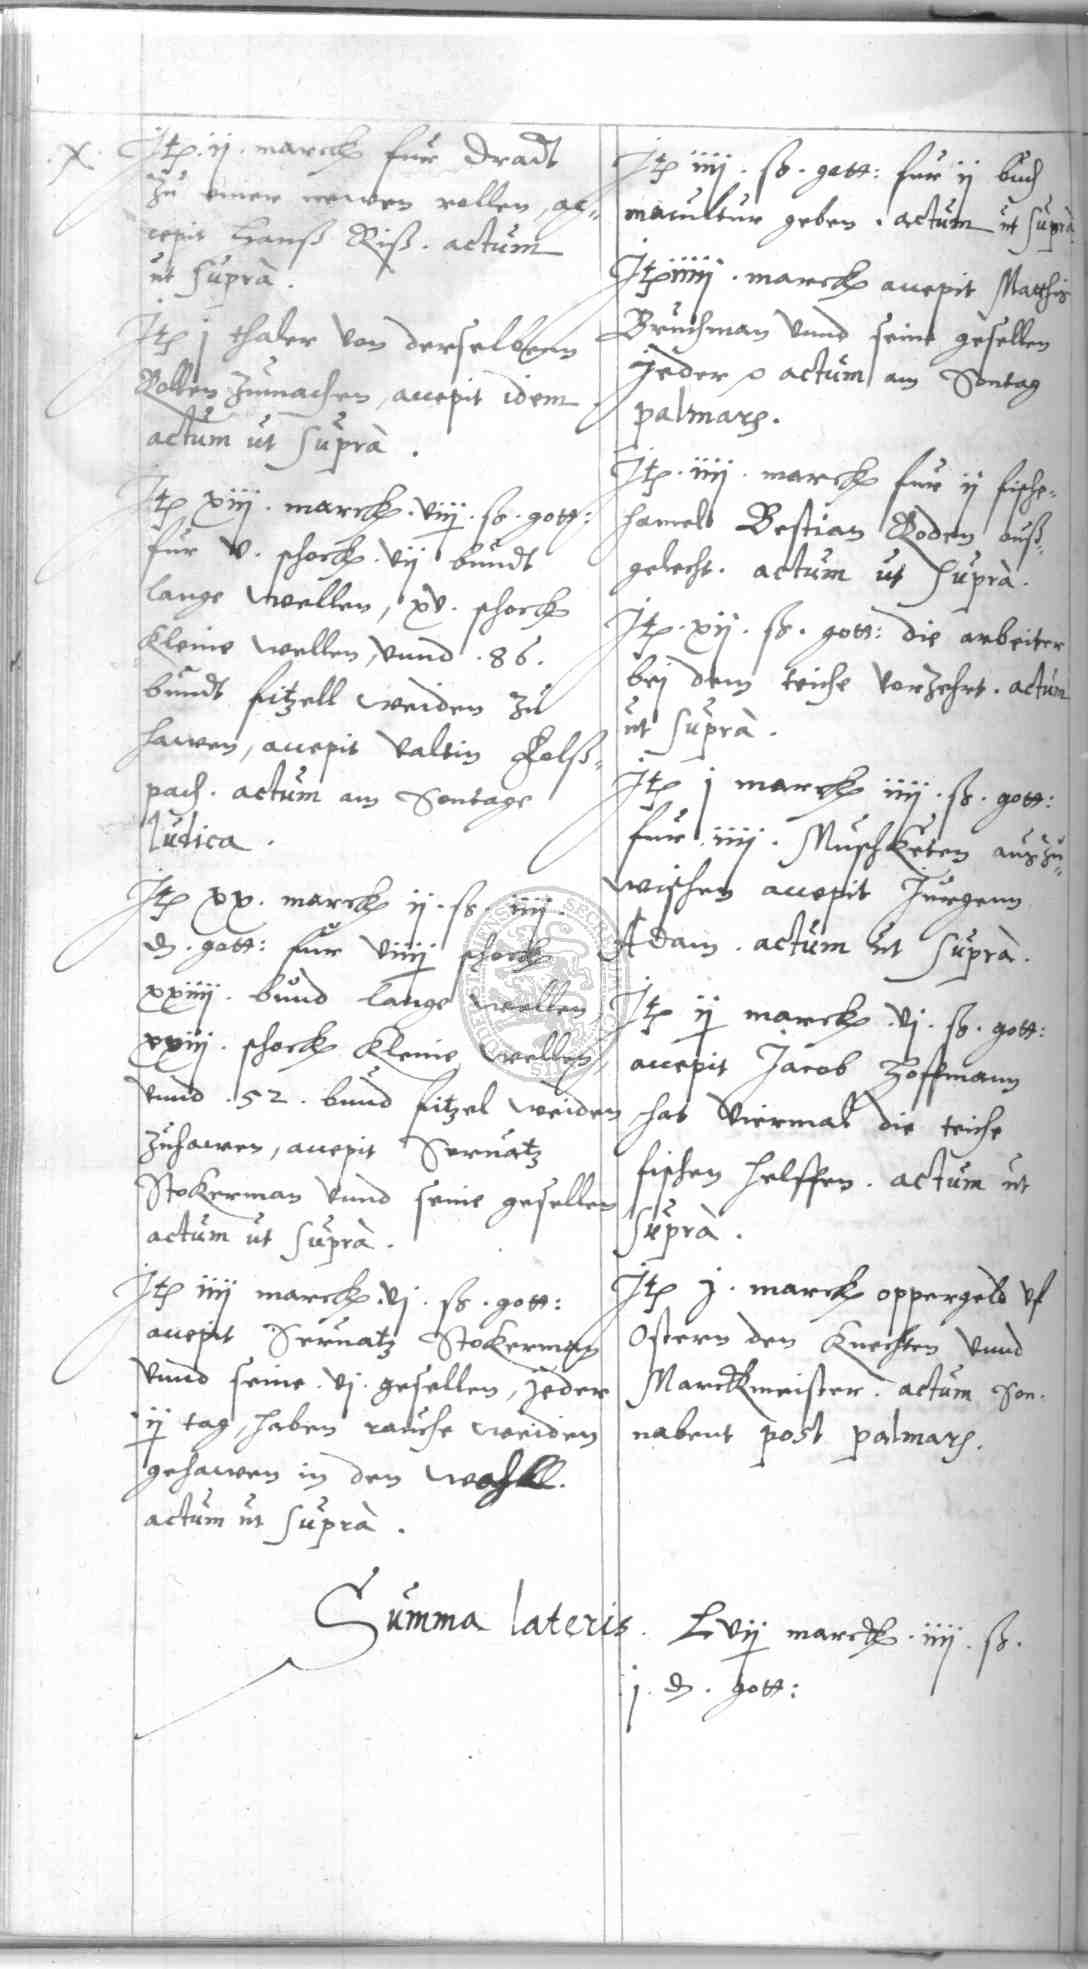 .x. Itp. ij. marck fur dradt
zu einer newen rollen, ac-
cepit Hanß Riß. actum
ut supra.
Itp j thaler von derselbenn
Rollen zumachen, accepit idem
actum ut supra.
Itp xiij. marck. viij. ß. gott:
fur v. schock. vij bundt
lange wellen, xv. schock
kleine wellen, vnnd .86.
bundt fitzell weiden zu
hawen, accepit Valtin
pach. actum am Sontage
Iudica.
Itp xx. marck ij. ß. iiij.
d. gott: fur viiij schock
xxiiij. bund lange wellen,
xxiij. schock kleine wellen,
vnnd .52. bund fitzel weiden
zuhawen, accepit Servatz
Stokerman vnnd seine gesellen
actum ut supra.
Itp iiij marck. vj. ß. gott:
accepit Servatz Stokerman
vnnd seine. vj. gesellen, jeder
ij tag, haben rauche weiden
gehawen in den
actum ut supra.
Itp iiij. ß. gott: fur ij buch
macultur geben. actum ut supra
Itp iiiij. marck accepit Matthis
Bruchman vnnd seine gesellen
jeder actum am Sontag
palmarum.
Itp. iiij. marck fur ij fische-
hamel Bestian Roden auß-
gelecht. actum ut supra.
Itp. xij. ß. gott: die arbeiter
bei dem teiche vorzehrt. actum
ut supra.
Itp j marck iiij. ß. gott:
fur. iiij. Muschketen auszu-
wischen accepit Jurgenn
Adam. actum ut supra.
Itp ij marck. vj. ß. gott:
accepit Jacob Hoffmann
hat viermal die teiche
fischen helffen. actum ut
supra.
Itp j. marck oppergeld vf
Ostern den Knechten vnnd
Marckmeister. actum Son-
nabent post palmarum.
Summa lateris. Lvij marck. iiij. ß.
j. d. gott: